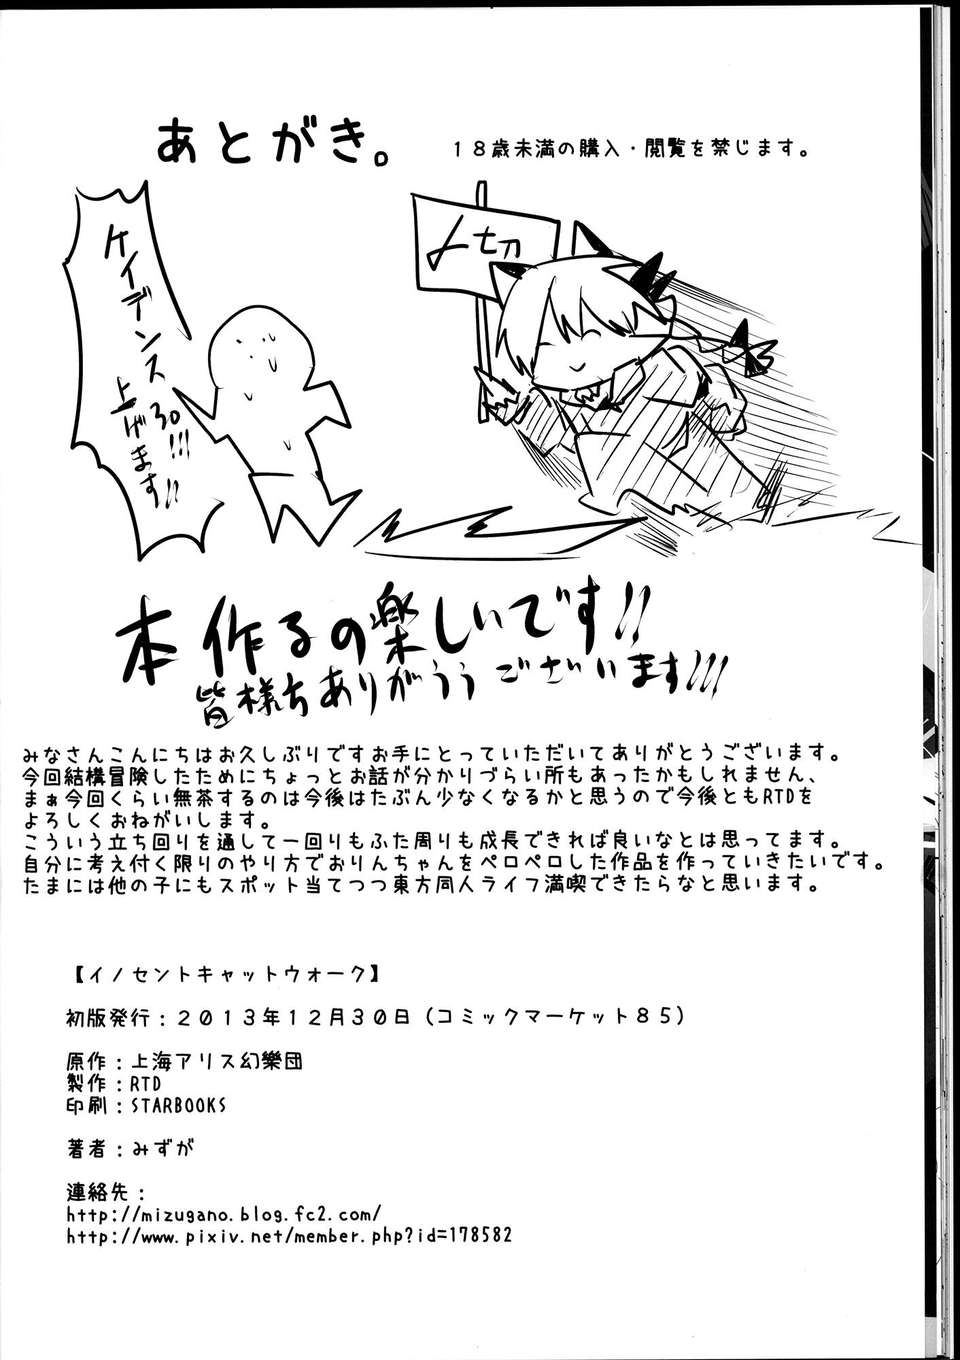 あとがき。
18歳未満の購入・閲覧を禁じます。
〆切
ケイデンス
30!!!
上げます!!
本作るの楽しいです!!
皆様ちありがうぅございます!!!
みなさんこんにちはお久しぶりですお手にとっていただいてありがとうございます。
今回結構冒険したためにちょっとお話が分かりづらい所もあったかもしれません、
まぁ今回くらい無茶するのは今後はたぶん少なくなるかと思うので今後ともRTDを
よろしくおねがいします。
こういう立ち回りを通して一回りもふた周りも成長できれば良いなとは思ってます。
自分に考え付く限りのやり方でおりんちゃんをペロペロした作品を作っていきたいです。
たまには他の子にもスポット当てつつ東方同人ライフ満喫できたらなと思います。
【イノセントキャットウォーク】
初版発行：2013年12月30日（コミックマーケット85）
原作：上海アリス幻樂団
製作：RTD
印刷：STARBOOKS
著者：みずが
連絡先：
http://mizugano.blog.fc2.com/
http://www.pixiv.net/member.php?id=178582